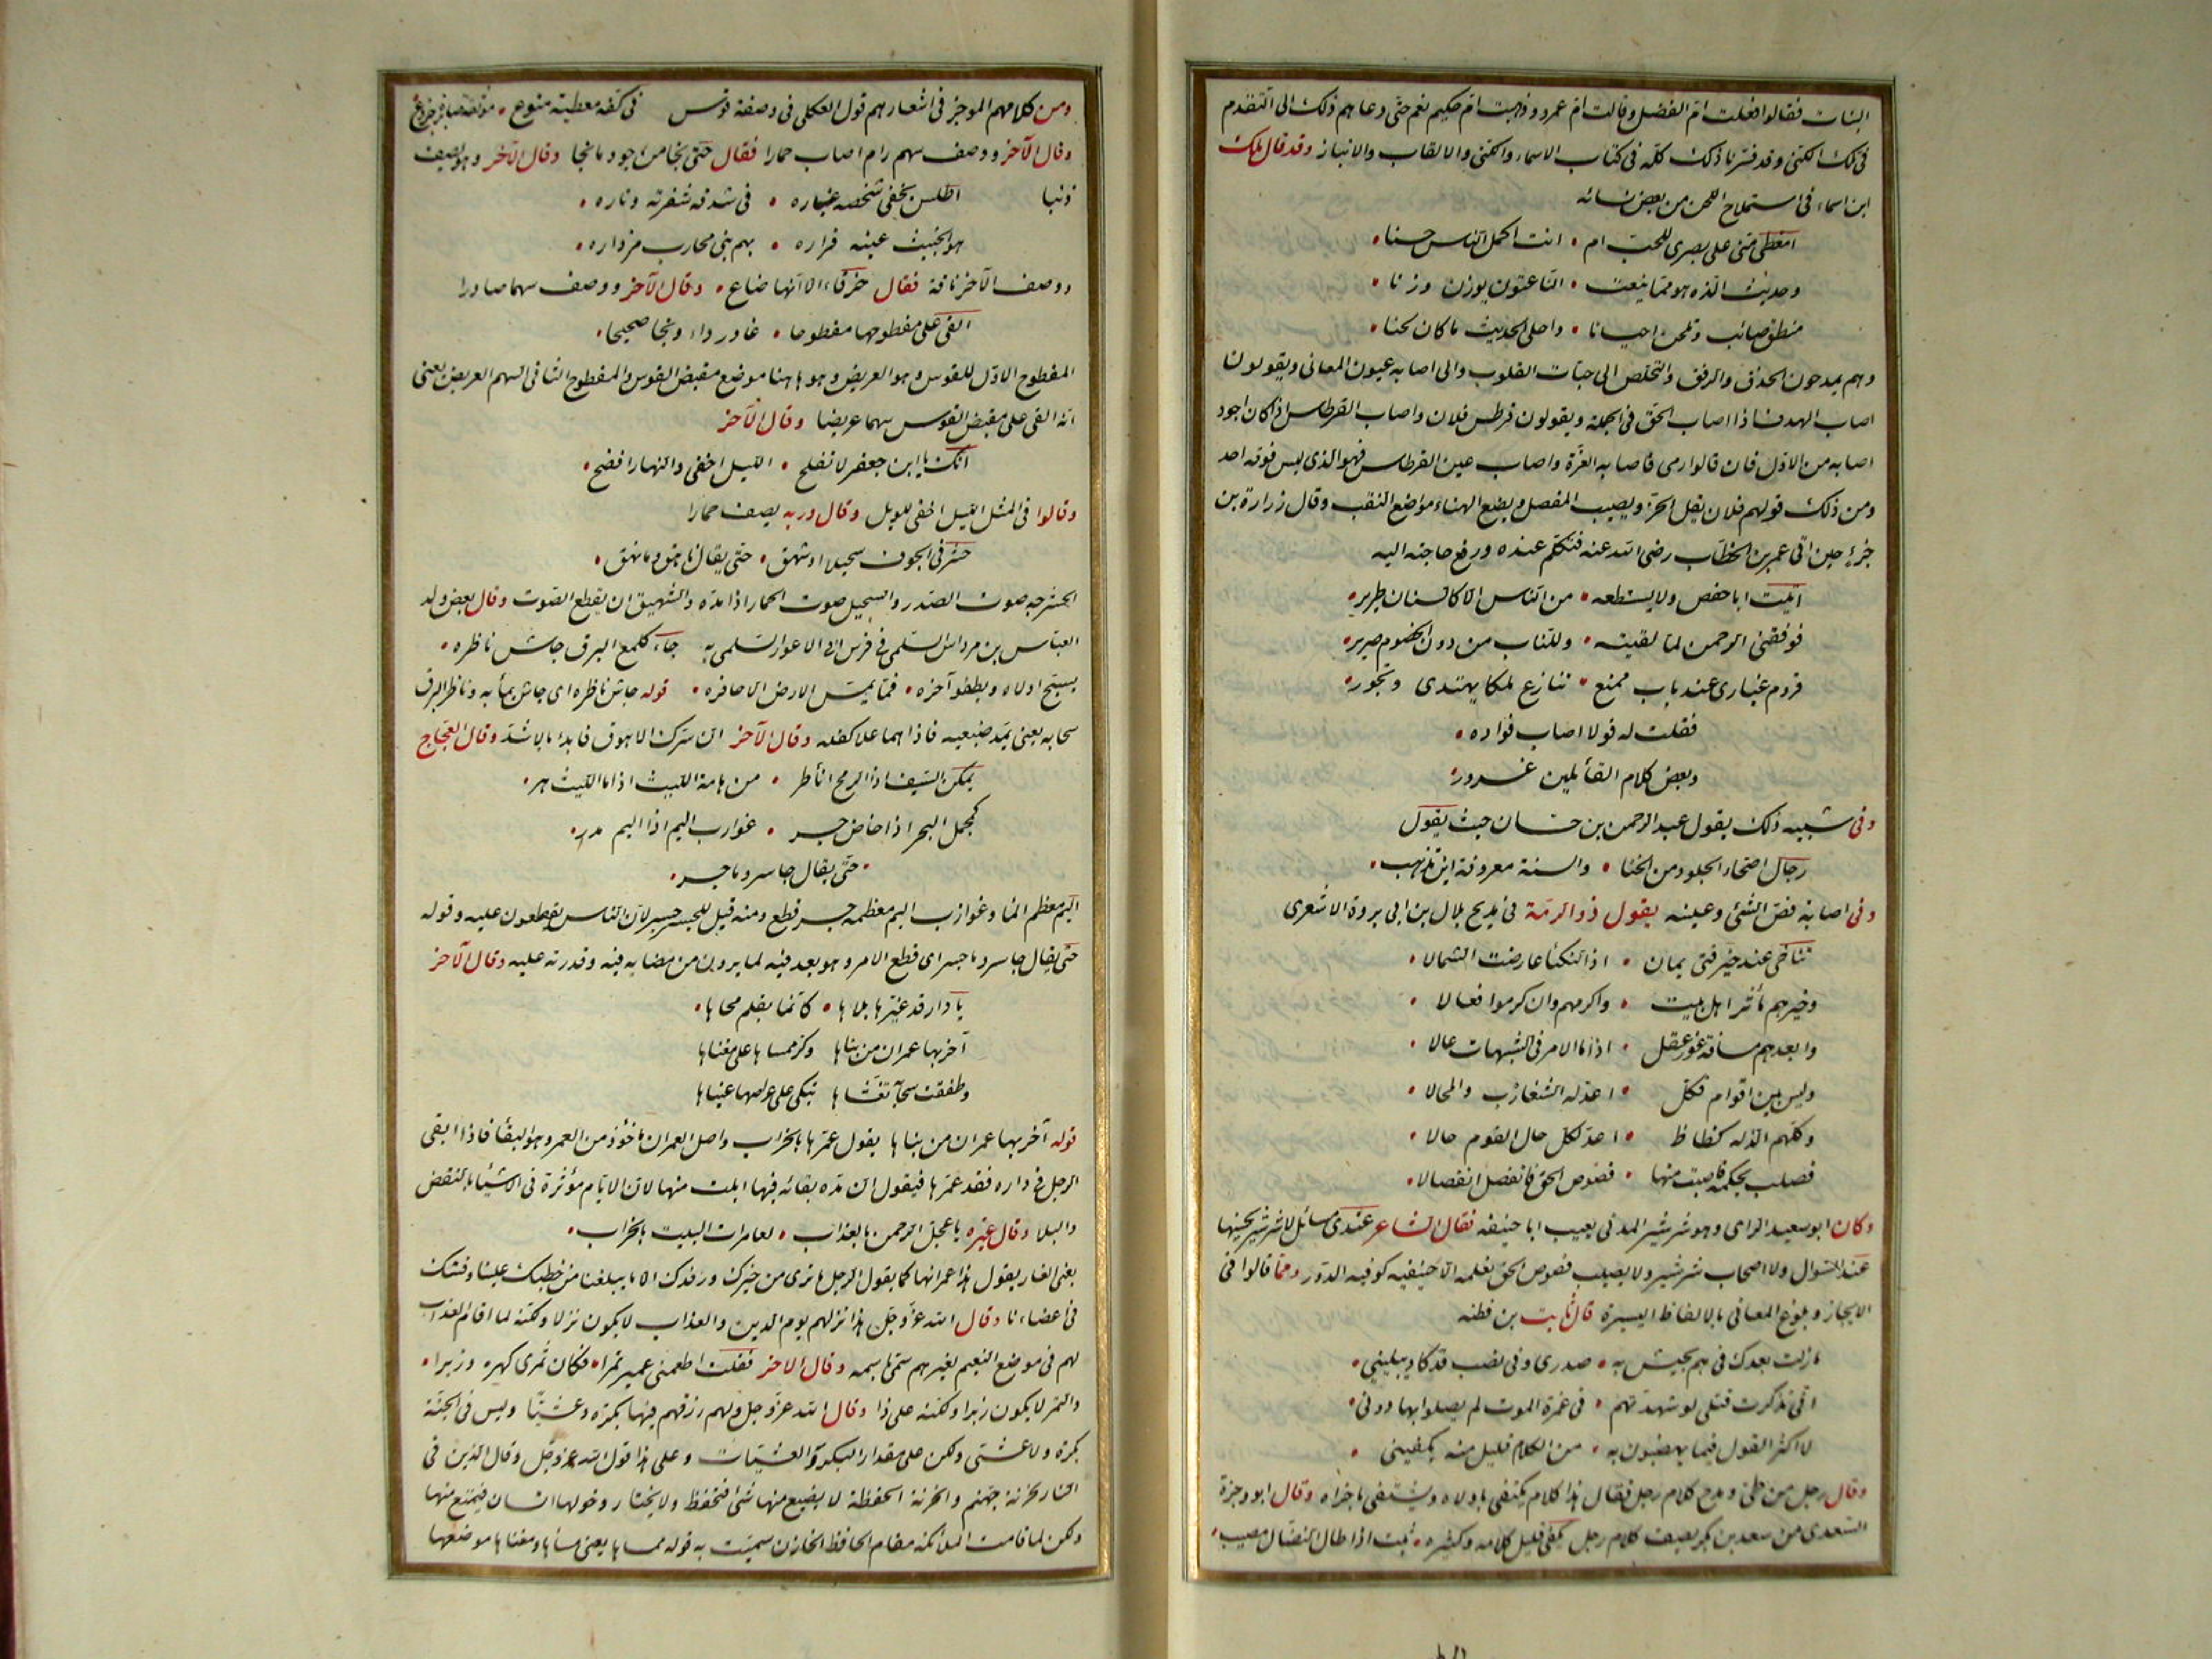 البنات فقالوا فعلت ام الفضل وقالت ام عمرو وذهبت ام حكيم نعم حتى دعاهم ذلك الى التقدم
فى تلك الكنى وقد فسرنا ذلك كله فى كتاب الاسماء والكنى والالقاب والانباز وقد قال ملك
ابن اسماء فى استملاح اللحن من بعض نسائه
امغطى منى على بصرى للحب ام • انت اكمل الناس حسنا •
وحديث الذه هو مما ينعت • الناعتون يوزن وزنا •
منطق صائب وتلحن احيانا • واحلى الحديث ما كان لحنا •
وهم يمدحون الحذق والرفق والتخلص الى حبات القلوب والى اصابه عيون المعانى ويقولون
اصاب الهدف اذا اصاب الحق فى الجملة ويقولون قرطس فلان واصاب القرطاس اذا كان اجود
اصابه من الاول فان قالوا رمى فاصاب الغرة واصاب عين القرطاس فهو الذى ليس فوقه احد
ومن ذلك قولهم فلان يفل الحز ويصيب المفصل ويضع الهناء مواضع النقب وقال زرارة بن
جزء حين اتى عمر بن الخطاب رضى الله عنه فتكلم عنده ورفع حاجته اليه
اتيت ابا حفص ولا يسطعه • من الناس الا كالسنان طرير •
فوفقنى الرحمن لما لقيته • وللباب من دون الخصوم صرير •
قروم غيارى عند باب ممنع • تنازع ملكا يهتدى وتجور •
فقلت له قولا اصاب فواده •
وبعض كلام القائلين غرور •
وفى شبيه ذلك يقول عبد الرحمن بن حسان حيث يقول
رجال اصحاء الجلود من الخنا • والسنة معروفة اين تذهب •
وفى اصابة فص الشئ وعينه يقول ذو الرمة فى مديح بلال بن ابى بردة الاشعرى
تناخى عند خير فتى يمان • اذا النكباء عارضت الشمالا •
وخيرهم مآثر اهل بيت • واكرمهم وان كرموا فعالا •
وابعدهم مسافة غور عقل • اذا ما الامر فى الشبهات عالا •
وليس بين اقوام فكل • اعد له الشغازب والمحالا •
وكلهم الد له كظاظ • اعد لكل حال القوم حالا •
فصلت بحكمة فاصبت منها • فصوص الحق فانفصل انفصالا •
وكان ابو سعيد الراى وهو شرشير المدنى يعيب ابا حنيفه فقال الشاعر عندى مسائل لا شرشير يحسنها
عند السؤال ولا اصحاب شرشير ولا يصيب فصوص الحق نعلمه الا حنيفيه كوفيه الدور ومما قالوا فى
الايجاز وبلوغ المعانى بالالفاظ اليسيرة قال ثابت بن قطنه
ما زلت بعدك فى هم يجيش به • صدرى وفى نصب قد كاد يبلينى •
انى تذكرت قتلى لو شهدتهم • فى غمرة الموت لم يصلوا بها دونى •
لا اكثر القول فيما يهضبون به • من الكلام قليل منه يكفينى •
وقال رجل من طئ ومدح كلام رجل فقال هذا كلام يكتفى باولاه ويشتفى باخراه وقال ابو وجزة
السعدى من سعد بن بكر يصف كلام رجل يكفى قليل كلامه وكثيره • ثبت اذا طال النضال مصيب •
ومن كلامهم الموجز فى اشعارهم قول العكلى فى وصفة قوس فى كفه معطية منوع •
وقال الآخر ووصف سهم رام اصاب حمارا فقال حتى نجا من جوفه وما نجا وقال الآخر وهو يصف
ذئبا اطلس يخفى شخصه غباره • فى شدقه شفرته وناره •
هو الخبيث عينه فراره • بهم بنى محارب مزداره •
ووصف الآخر ناقة فقال خرقاء الا انها صناع • وقال الآخر ووصف سهما صاردا
القى على مفطوحها مفطوحا • غادر داء ونجا صحيحا •
المفطوح الاول للقوس وهو العريض وهو ها هنا موضع مقبض القوس والمفطوح الثانى السهم العريض يعنى
انه القى على مقبض القوس سهما عريضا وقال الآخر
انك يا ابن جعفر لا تفلح • الليل اخفى والنهار افضح •
وقالوا فى المثل الليل اخفى للويل وقال روبه يصف حمارا
حشرج فى الجوف سحيلا او شهق • حتى يقال ناهق وما نهق •
الحشرجه صوت الصدر والسحيل صوت الحمار اذا مده والشهيق ان يقطع الصوت وقال بعض ولد
العباس بن مرداس السلمى فى فرس ابى الاعور السلمى جاء كلمع البرق جاش ناظره •
يسبح اولاه ويطفو آخره • فما يمس الارض الا حافره • قوله جاش ناظره اى جاش بمائه وناظر البرق
سحابه يعنى يمد ضبعيه فاذا هما علا كفله وقال الآخر ان سرك الاهون فابدء بالاشد وقال العجاج
يمكن السيف اذا الرمح انأطر • من هامة الليث اذا ما الليث هر •
كجمل البحر اذا خاض جسر • غوارب اليم اذا اليم هدر •
• حتى يقال جاسر وما جسر •
اليم معظم الماء وغوارب اليم معظمه جسر قطع ومنه قيل للجسر جسر لان الناس يقطعون عليه وقوله
حتى يقال جاسر وما جسر اى قطع الامر وهو بعد فيه لما يرون من مضايه فيه وقدرته عليه وقال الآخر
يا دار قد غيرها بلاها • كانما بقلم محاها •
آخربها عمران من بناها وكر ممساها على مغناها
وطفقت سحابة تغشاها تبكى على عراصها عيناها
قوله آخربها عمران من بناها يقول عمرها بالخراب واصل العمران ماخوذ من العمر وهو البقاء فاذا ابقى
الرجل فى داره فقد عمرها فيقول ان مده بقائه فيها ابلت منها لان الايام مؤثرة فى الاشياء بالنقض
والبلا وقال غيره يا عجل الرحمن بالعذاب • لعامرات البيت بالخراب •
يعنى الفار يقول هذا عمرانها كما يقول الرجل ما نرى من خيرك ورفدك الا ما يبلغنا من خطبك علينا وفتك
فى اعضاءنا وقال الله عز وجل هذا نزلهم يوم الدين والعذاب لا يكون نزلا ولكنه لما اقام العذاب
لهم فى موضع النعيم لغيرهم سمى باسمه وقال الاخر فقلت اطعمنى عمير تمرا • فكان تمرى كهره وزبرا •
والتمر لا يكون زبرا ولكنه على ذا وقال الله عز وجل ولهم رزقهم فيها بكرة وعشيا وليس فى الجنة
بكرة ولا عشى ولكن على مقدار البكر والعشيات وعلى هذا قول الله عز وجل وقال الذين فى
النار لخزنة جهنم والخزنة الحفظة لا يضيع منها شئ فتحفظ ولا يختار دخولها انسان فيمنع منها
ولكن لما قامت الملائكة مقام الحافظ الخازن سميت به قوله ممساها يعنى مساءها ومغناها موضعها